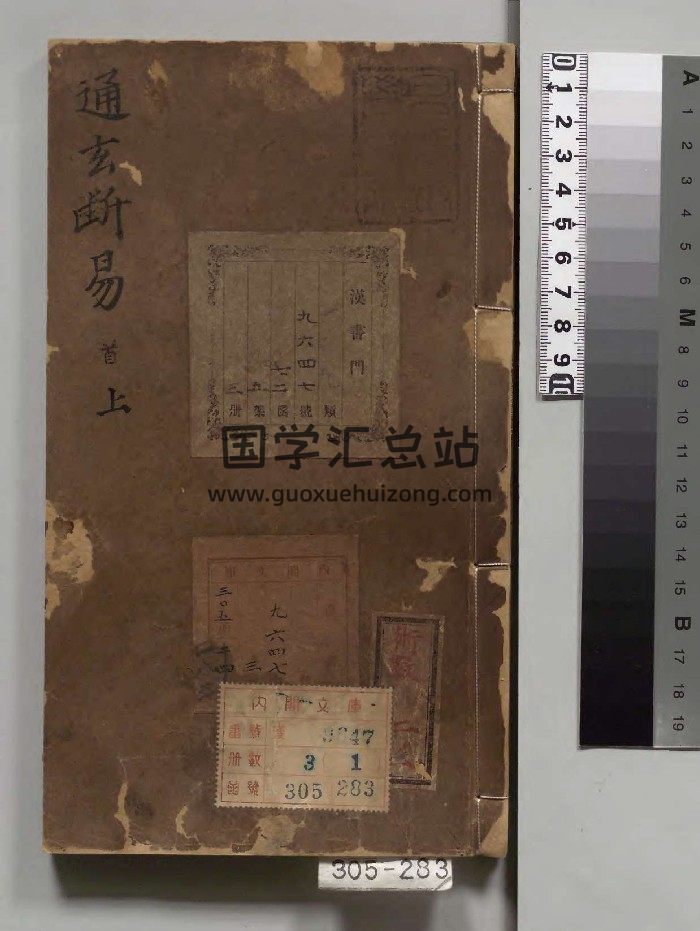 通玄断易
首
上
漢書門
九六四七
七二
五
三
類
號
函
架
册
国学汇总站
www.guoxuehuizong.com
九六四七
三
三〇五
内閣文庫
番號
漢
9647
册數
3
1
函號
305
283
305-283
0 1 2 3 4 5 6 7 8 9 10
A 1 2 3 4 5 6 M 8 9 10 11 12 13 14 15 B 17 18 19